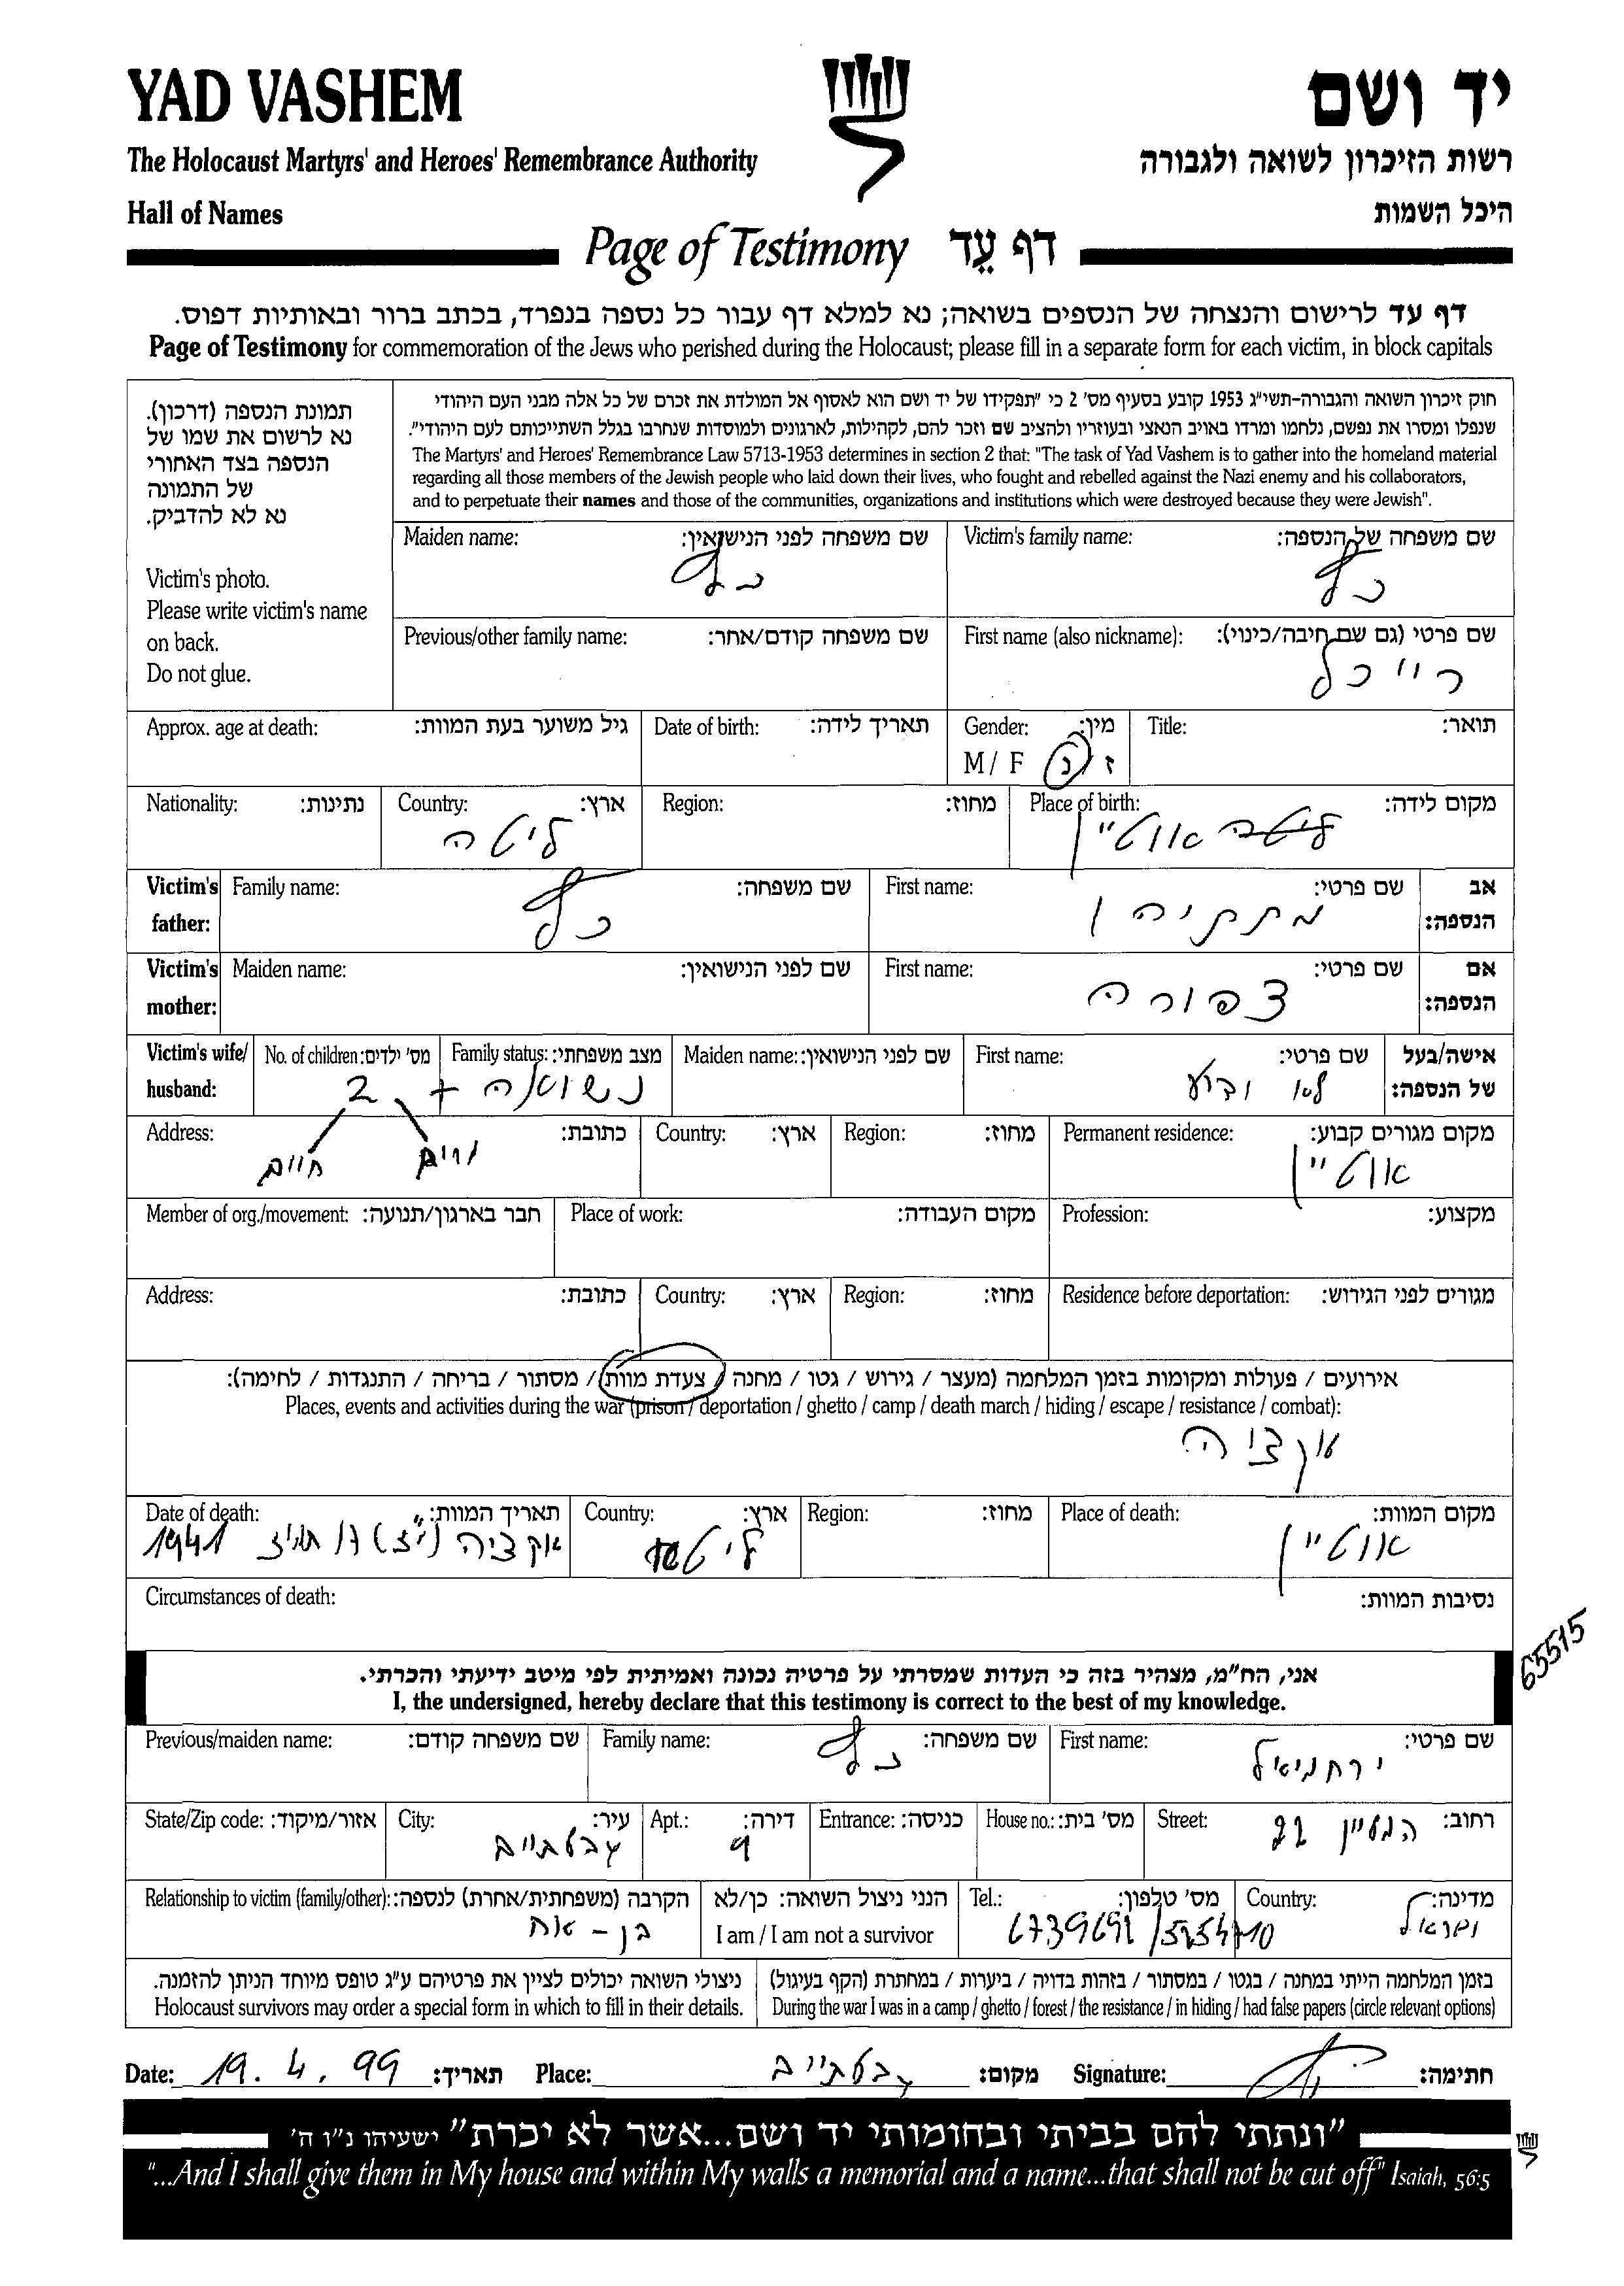 YAD VASHEM
יד ושם
The Holocaust Martyrs' and Heroes' Remembrance Authority
רשות הזיכרון לשואה ולגבורה
Hall of Names
היכל השמות
Page of Testimony דף עֵד
דף עד לרישום והנצחה של הנספים בשואה; נא למלא דף עבור כל נספה בנפרד, בכתב ברור ובאותיות דפוס.
Page of Testimony for commemoration of the Jews who perished during the Holocaust; please fill in a separate form for each victim, in block capitals
תמונת הנספה (דרכון).
נא לרשום את שמו של
הנספה בצד האחורי
של התמונה
נא לא להדביק.
Victim's photo.
Please write victim's name
on back.
Do not glue.
חוק זיכרון השואה והגבורה-תשי"ג 1953 קובע בסעיף מס' 2 כי "תפקידו של יד ושם הוא לאסוף אל המולדת את זכרם של כל אלה מבני העם היהודי
שנפלו ומסרו את נפשם, נלחמו ומרדו באויב הנאצי ובעוזריו ולהציב שם וזכר להם, לקהילות, לארגונים ולמוסדות שנחרבו בגלל השתייכותם לעם היהודי".
The Martyrs' and Heroes' Remembrance Law 5713-1953 determines in section 2 that: "The task of Yad Vashem is to gather into the homeland material
regarding all those members of the Jewish people who laid down their lives, who fought and rebelled against the Nazi enemy and his collaborators,
and to perpetuate their names and those of the communities, organizations and institutions which were destroyed because they were Jewish".
Victim's family name: שם משפחה של הנספה:
כץ
Maiden name: שם משפחה לפני הנישואין:
כץ
First name (also nickname): שם פרטי (גם שם חיבה/כינוי):
רייכל
Previous/other family name: שם משפחה קודם/אחר:
Title: תואר:
Gender: מין:
M / F ז / נ
Date of birth: תאריך לידה:
Approx. age at death: גיל משוער בעת המוות:
Place of birth: מקום לידה:
ליטה אוטיין
Region: מחוז:
Country: ארץ:
ליטה
Nationality: נתינות:
Victim's father: אב הנספה:
First name: שם פרטי:
מתתיהו
Family name: שם משפחה:
כץ
Victim's mother: אם הנספה:
First name: שם פרטי:
צפורה
Maiden name: שם לפני הנישואין:
Victim's wife/ husband: אישה/בעל של הנספה:
First name: שם פרטי:
לא ידוע
Maiden name: שם לפני הנישואין:
Family status: מצב משפחתי:
נשואה +
No. of children: מס' ילדים:
2
Permanent residence: מקום מגורים קבוע:
אוטיין
Region: מחוז:
Country: ארץ:
Address: כתובת:
חיים
Profession: מקצוע:
Place of work: מקום העבודה:
Member of org./movement: חבר בארגון/תנועה:
Residence before deportation: מגורים לפני הגירוש:
Region: מחוז:
Country: ארץ:
Address: כתובת:
אירועים / פעולות ומקומות בזמן המלחמה (מעצר / גירוש / גטו / מחנה / צעדת מוות / מסתור / בריחה / התנגדות / לחימה):
Places, events and activities during the war (prison / deportation / ghetto / camp / death march / hiding / escape / resistance / combat):
אקציה
Place of death: מקום המוות:
אוטיין
Region: מחוז:
Country: ארץ:
ליטה
Date of death: תאריך המוות:
אקציה תמוז 1941
Circumstances of death: נסיבות המוות:
65515
אני, הח"מ, מצהיר בזה כי העדות שמסרתי על פרטיה נכונה ואמיתית לפי מיטב ידיעתי והכרתי.
I, the undersigned, hereby declare that this testimony is correct to the best of my knowledge.
First name: שם פרטי:
ירחמיאל
Family name: שם משפחה:
כץ
Previous/maiden name: שם משפחה קודם:
Street: רחוב:
המעיין 22
House no.: מס' בית:
Entrance: כניסה:
Apt.: דירה:
9
City: עיר:
גבעתיים
State/Zip code: אזור/מיקוד:
Country: מדינה:
ישראל
Tel.: מס' טלפון:
הנני ניצול השואה: כן/לא
I am / I am not a survivor
Relationship to victim (family/other): הקרבה (משפחתית/אחרת) לנספה:
בן - אח
בזמן המלחמה הייתי במחנה / בגטו / במסתור / בזהות בדויה / ביערות / במחתרת (הקף בעיגול)
During the war I was in a camp / ghetto / forest / the resistance / in hiding / had false papers (circle relevant options)
ניצולי השואה יכולים לציין את פרטיהם ע"ג טופס מיוחד הניתן להזמנה.
Holocaust survivors may order a special form in which to fill in their details.
Date: 19.4.99 תאריך: Place: גבעתיים מקום: Signature: חתימה:
"ונתתי להם בביתי ובחומותי יד ושם...אשר לא יכרת" ישעיהו נ"ו ה'
"...And I shall give them in My house and within My walls a memorial and a name...that shall not be cut off" Isaiah, 56:5